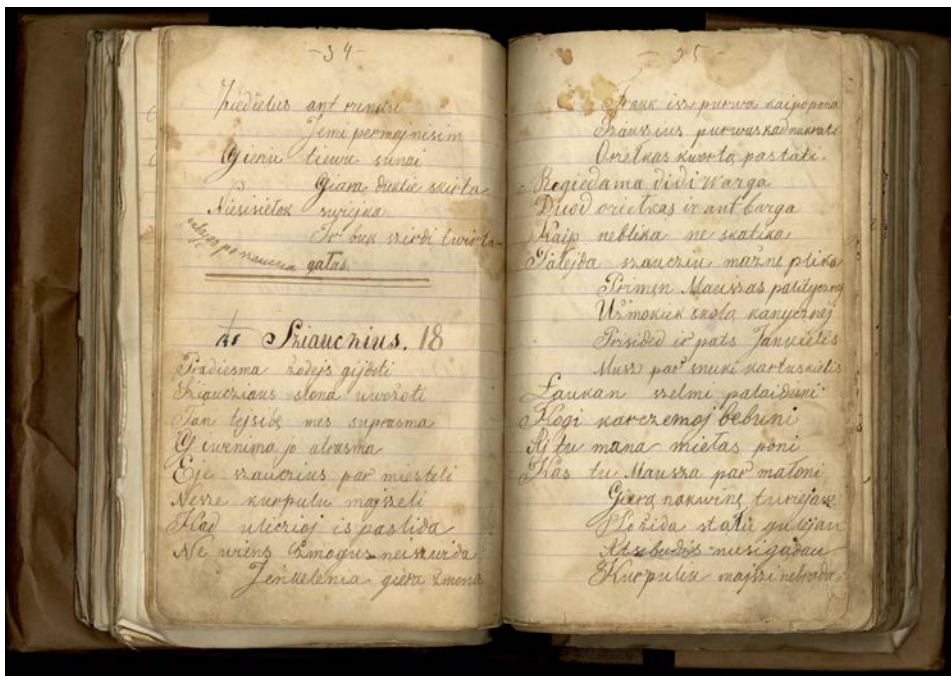 -34-
Ziedielus ant runku
Jemi permajnisim
Gieriu tiewu sunai
Giara duktie skirta
Niesisielok surejka
Ir buk szirdi twirta
gałas.
Sziauczius. 18
Pradiesma żodejs gijboti
Sziaucziaus stona uwożoti
Tan tejsibe mes suprasma
Gywenima jo atrasma
Eje szauczius par miesteli
Nesze kurpulu majszeli
Kad uliczioj is paslida
Ne wiens żmogus neiszwida
Jenkelenia giera żmona
-35-
Trauk isz purwa kaip opona
Szauszius purwas kad nukrati
Orielkas kwortą pastati.
Regiedama didi warga
Duod orielkas ir ant barga
Kaip neblika ne skatika
Palejda szaucziu mażne plika
Primen Mauszas palitycznej
Użmokiek skolą kanycznej
Prisided ir pats Jankielis
Musz par snuki kartuskielis
Łaukan szelmi pałaiduni
Kogi karczemoj bebuni
Aj tu mana miełas poni
Kas tu Mausza par małoni
Gierą nakwinę turiejau
Płożida stalu gulejau
Atsibudis nusigądau
Kurpuliu majszi nebradau